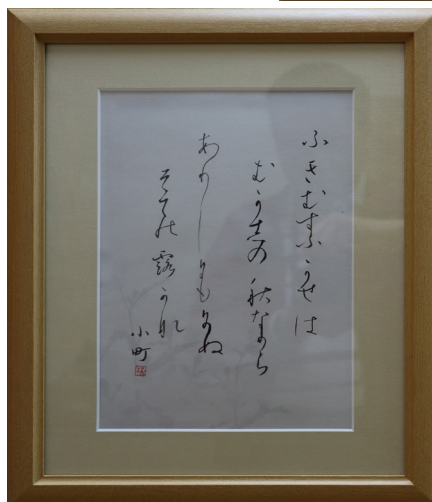 ふきむすふかせは
むかしの秋なから
ありしにもにぬ
そての露かな
小町